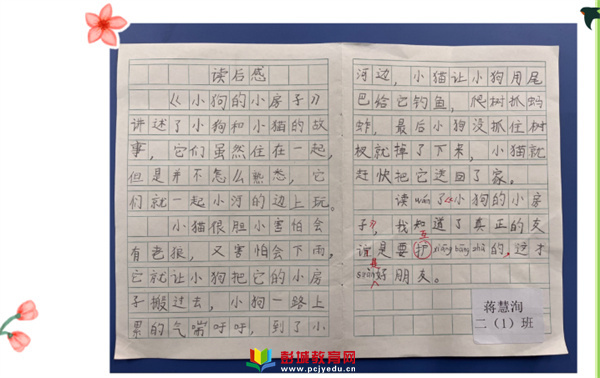 读后感
《小狗的小房子》
讲述了小狗和小猫的故
事，它们虽然住在一起，
但是并不怎么熟悉，它
们就一起小河的边上玩。
小猫很胆小害怕会
有老狼，又害怕会下雨，
它就让小狗把它的小房
子搬过去，小狗一路上
累的气喘吁吁，到了小
河边，小猫让小狗用尾
巴给它钓鱼，爬树抓蚂
蚱，最后小狗没抓住树
枝就掉了下来，小猫就
赶快把它送回了家。
读wán了《小狗的小房
子》，我知道了真正的友
谊是要互xiāng bāng zhù的，这才
suàn好朋友。
蒋慧洵
二（1）班
彭城教育网
www.pcjyedu.cn